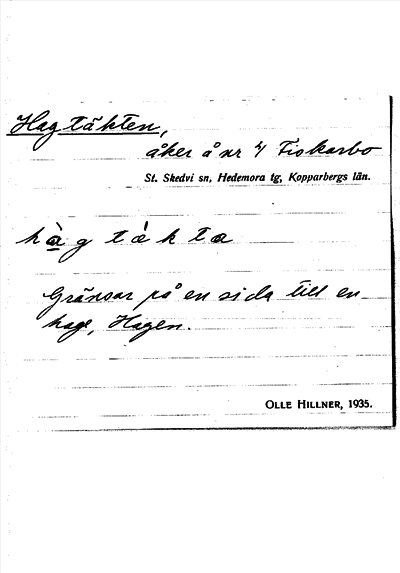 Hagtäkten,
åker å nr 4 Fiskarbo
St. Skedvi sn, Hedemora tg, Kopparbergs län.
hàgtákta
Gränsar på en sida till en
hage, Hagen.
OLLE HILLNER, 1935.